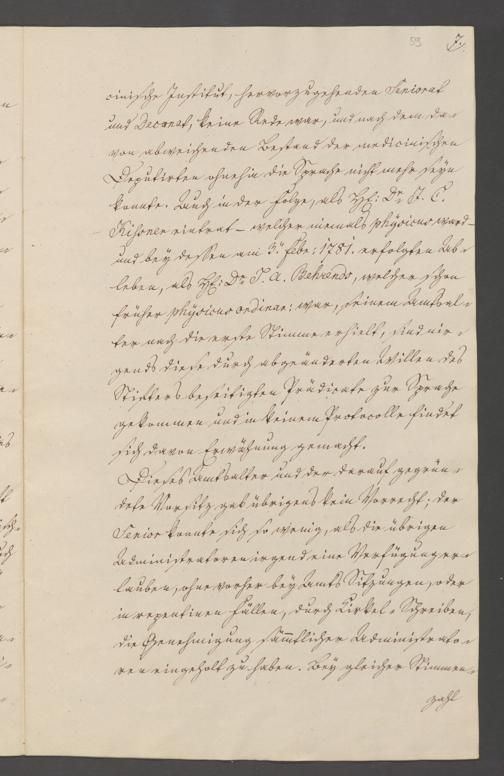 59 7.
cinische Institut, hervorzugehenden Seniorat
und Decanat, keine Rede war, und nach dem da=
von abweichenden Bestand der medicinischen
Deputirten ohnehin die Sprache nicht mehr seyn
konnte. Auch in der Folge, als H: Dr. J. C.
eintrat – welcher niemals physicus ward –
und bey dessen am 3. 1781. erfolgten Ab=
leben, als H: Dr. J. A. Behrends, welcher schon
früher physicus ordinar: war, seinem Amtsal=
ter nach die erste Stimme erhielt, sind nir=
gends diese durch abgeänderten Willen des
Stifters beseitigten Prädicate zur Sprache
gekommen, und in keinem Protocolle findet
sich davon Erwähnung gemacht.
Dieses Amtsalter und der darauf gegrün=
dete Vorsitz gab übrigens kein Vorrecht; der
Senior konnte sich so wenig, als die übrigen
Administratoren irgend eine Verfügung er=
lauben, ohne vorher bey Amts Sitzungen, oder
in repentinen Fällen, durch Cirkel=Schreiben,
die Genehmigung sämtlicher Administrato=
ren eingeholt zu haben. Bey gleicher Stimmen=
zahl